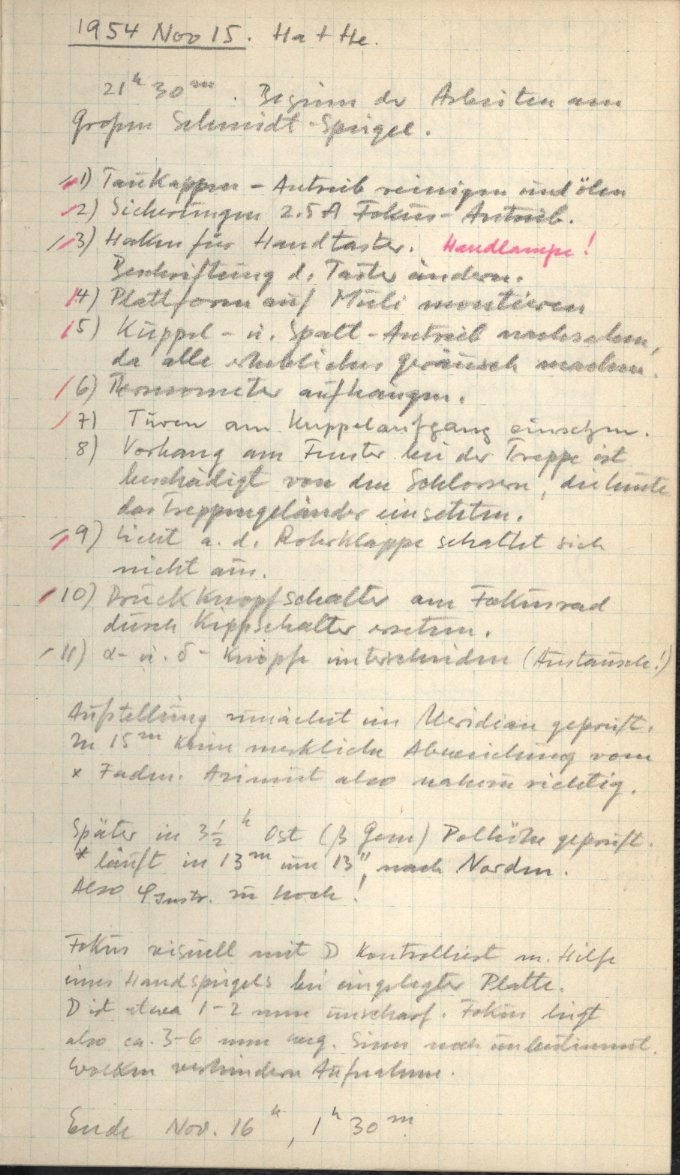 1954 Nov 15. Ha + He.
21h 30m. Beginn der Arbeiten am
Großen Schmidt-Spiegel.
1) Taukappen-Antrieb reinigen und ölen
2) Sicherungen 2.5A Fokus-Antrieb.
3) Haken für Handtaster. Handlampe!
Beschriftung d. Taster ändern.
4) Plattform auf Muli montieren
5) Kuppel- u. Spalt-Antrieb nachsehen,
da alle erhebliches Geräusch machen.
6) Thermometer aufhängen.
7) Türen am Kuppelaufgang einsetzen.
8) Vorhang am Fenster bei der Treppe ist
beschädigt von den Schlossern, die heute
das Treppengeländer einsetzten.
9) Licht a. d. Rohrklappe schaltet sich
nicht aus.
10) Druckknopfschalter am Fokusrad
durch Kippschalter ersetzen.
11) α- u. δ- Knöpfe unterscheiden (Austausch!)
Aufstellung zunächst im Meridian geprüft.
In 15m keine merkliche Abweichung vom
x Faden. Azimut also nahezu richtig.
Später in 3 1/2 h Ost (β Gem) Polhöhe geprüft.
* läuft in 13m um 13" nach Norden.
Also φ Instr. zu hoch!
Fokus visuell mit D kontrolliert m. Hilfe
eines Handspiegels bei eingelegter Platte.
D ist etwa 1-2 mm unscharf. Fokus liegt
also ca. 3-6 mm weg. Sinn noch unbestimmt.
Wolken verhindern Aufnahme.
Ende Nov. 16 h, 1h 30m